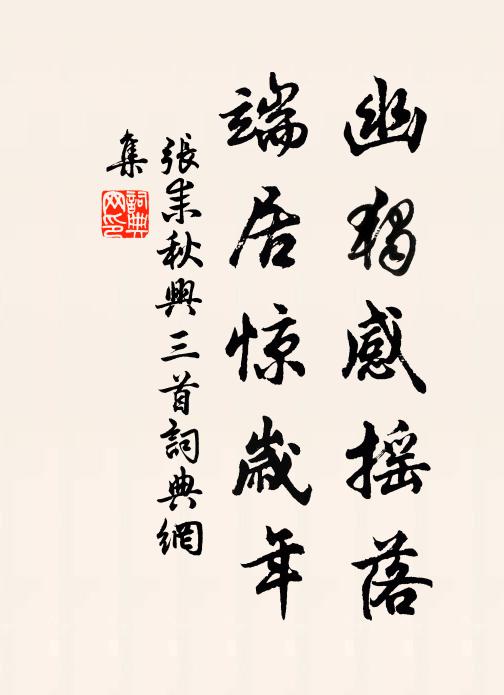 幽獨感搖落
端居惊歲年
張耒秋興三首詞典網
集
詞典
网印